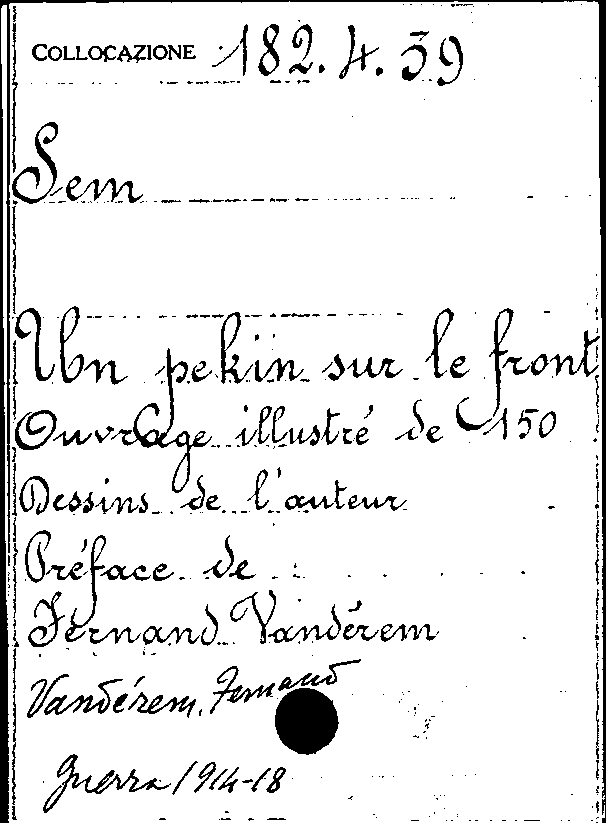 COLLOCAZIONE 182.4.39
Sem
Un pekin sur le front
Ouvrage illustré de 150
Dessins de l'auteur
Préface de
Fernand Vandérem
Vandérem, Fernand
Guerra 1914-18